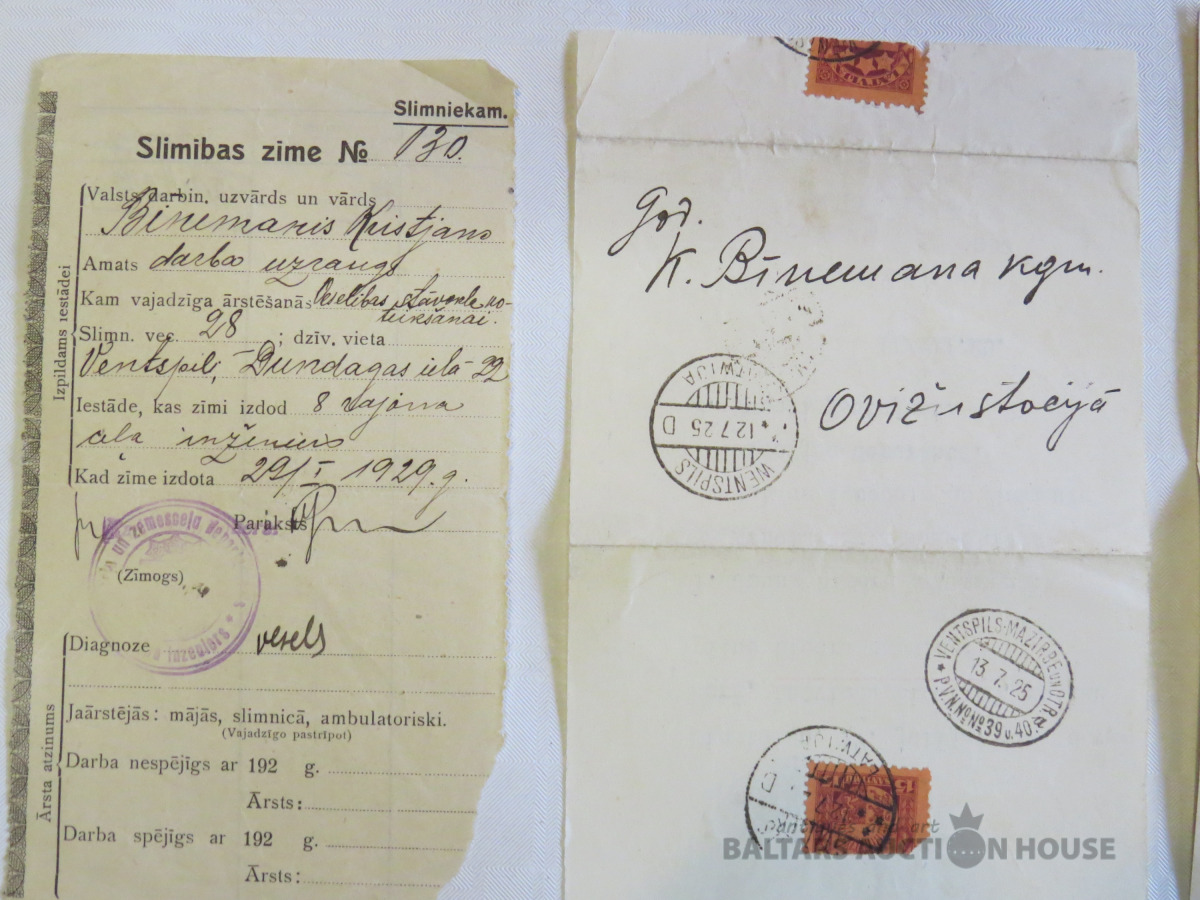 Slimniekam.
Slimibas zime № 130.
Izpildams iestādei
Valsts darbin. uzvārds un vārds
Binemanis Kristjans
Amats darbu uzraugs
Kam vajadzīga ārstēšanās Veselibas stāvokļa no-
teikšanai.
Slimn. vec. 28 ; dzīv. vieta
Ventspilī, Dundagas ielā 22
Iestāde, kas zīmi izdod 8 rajona
ceļa inženiers
Kad zīme izdota 29/I 1929. g.
Paraksts
(Zīmogs)
Ārsta atzinums
Diagnoze vesels
Jaārstējās: mājās, slimnicā, ambulatoriski.
(Vajadzīgo pastrīpot)
Darba nespējīgs ar 192 g.
Ārsts:
Darba spējīgs ar 192 g.
Ārsts:
God.
K. Bīnemana kgm.
Ovižu stocijā
LATWIJA
12.7.25 D
WENTSPILS
VENTSPILS-MAZIRBE un OTR.
13 7. 25
P.V.N. №№ 39 u. 40. a
LATWIJA
D
15
BALTARS AUCTION HOUSE